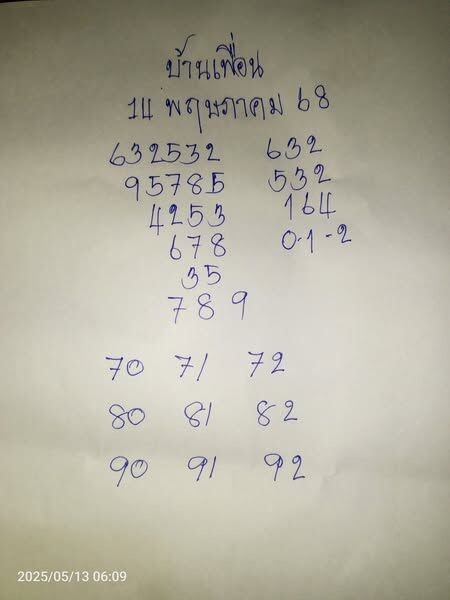 บ้านเพื่อน
14 พฤษภาคม 68
632532 632
95785 532
4253 164
678 0-1-2
35
789
70 71 72
80 81 82
90 91 92
2025/05/13 06:09